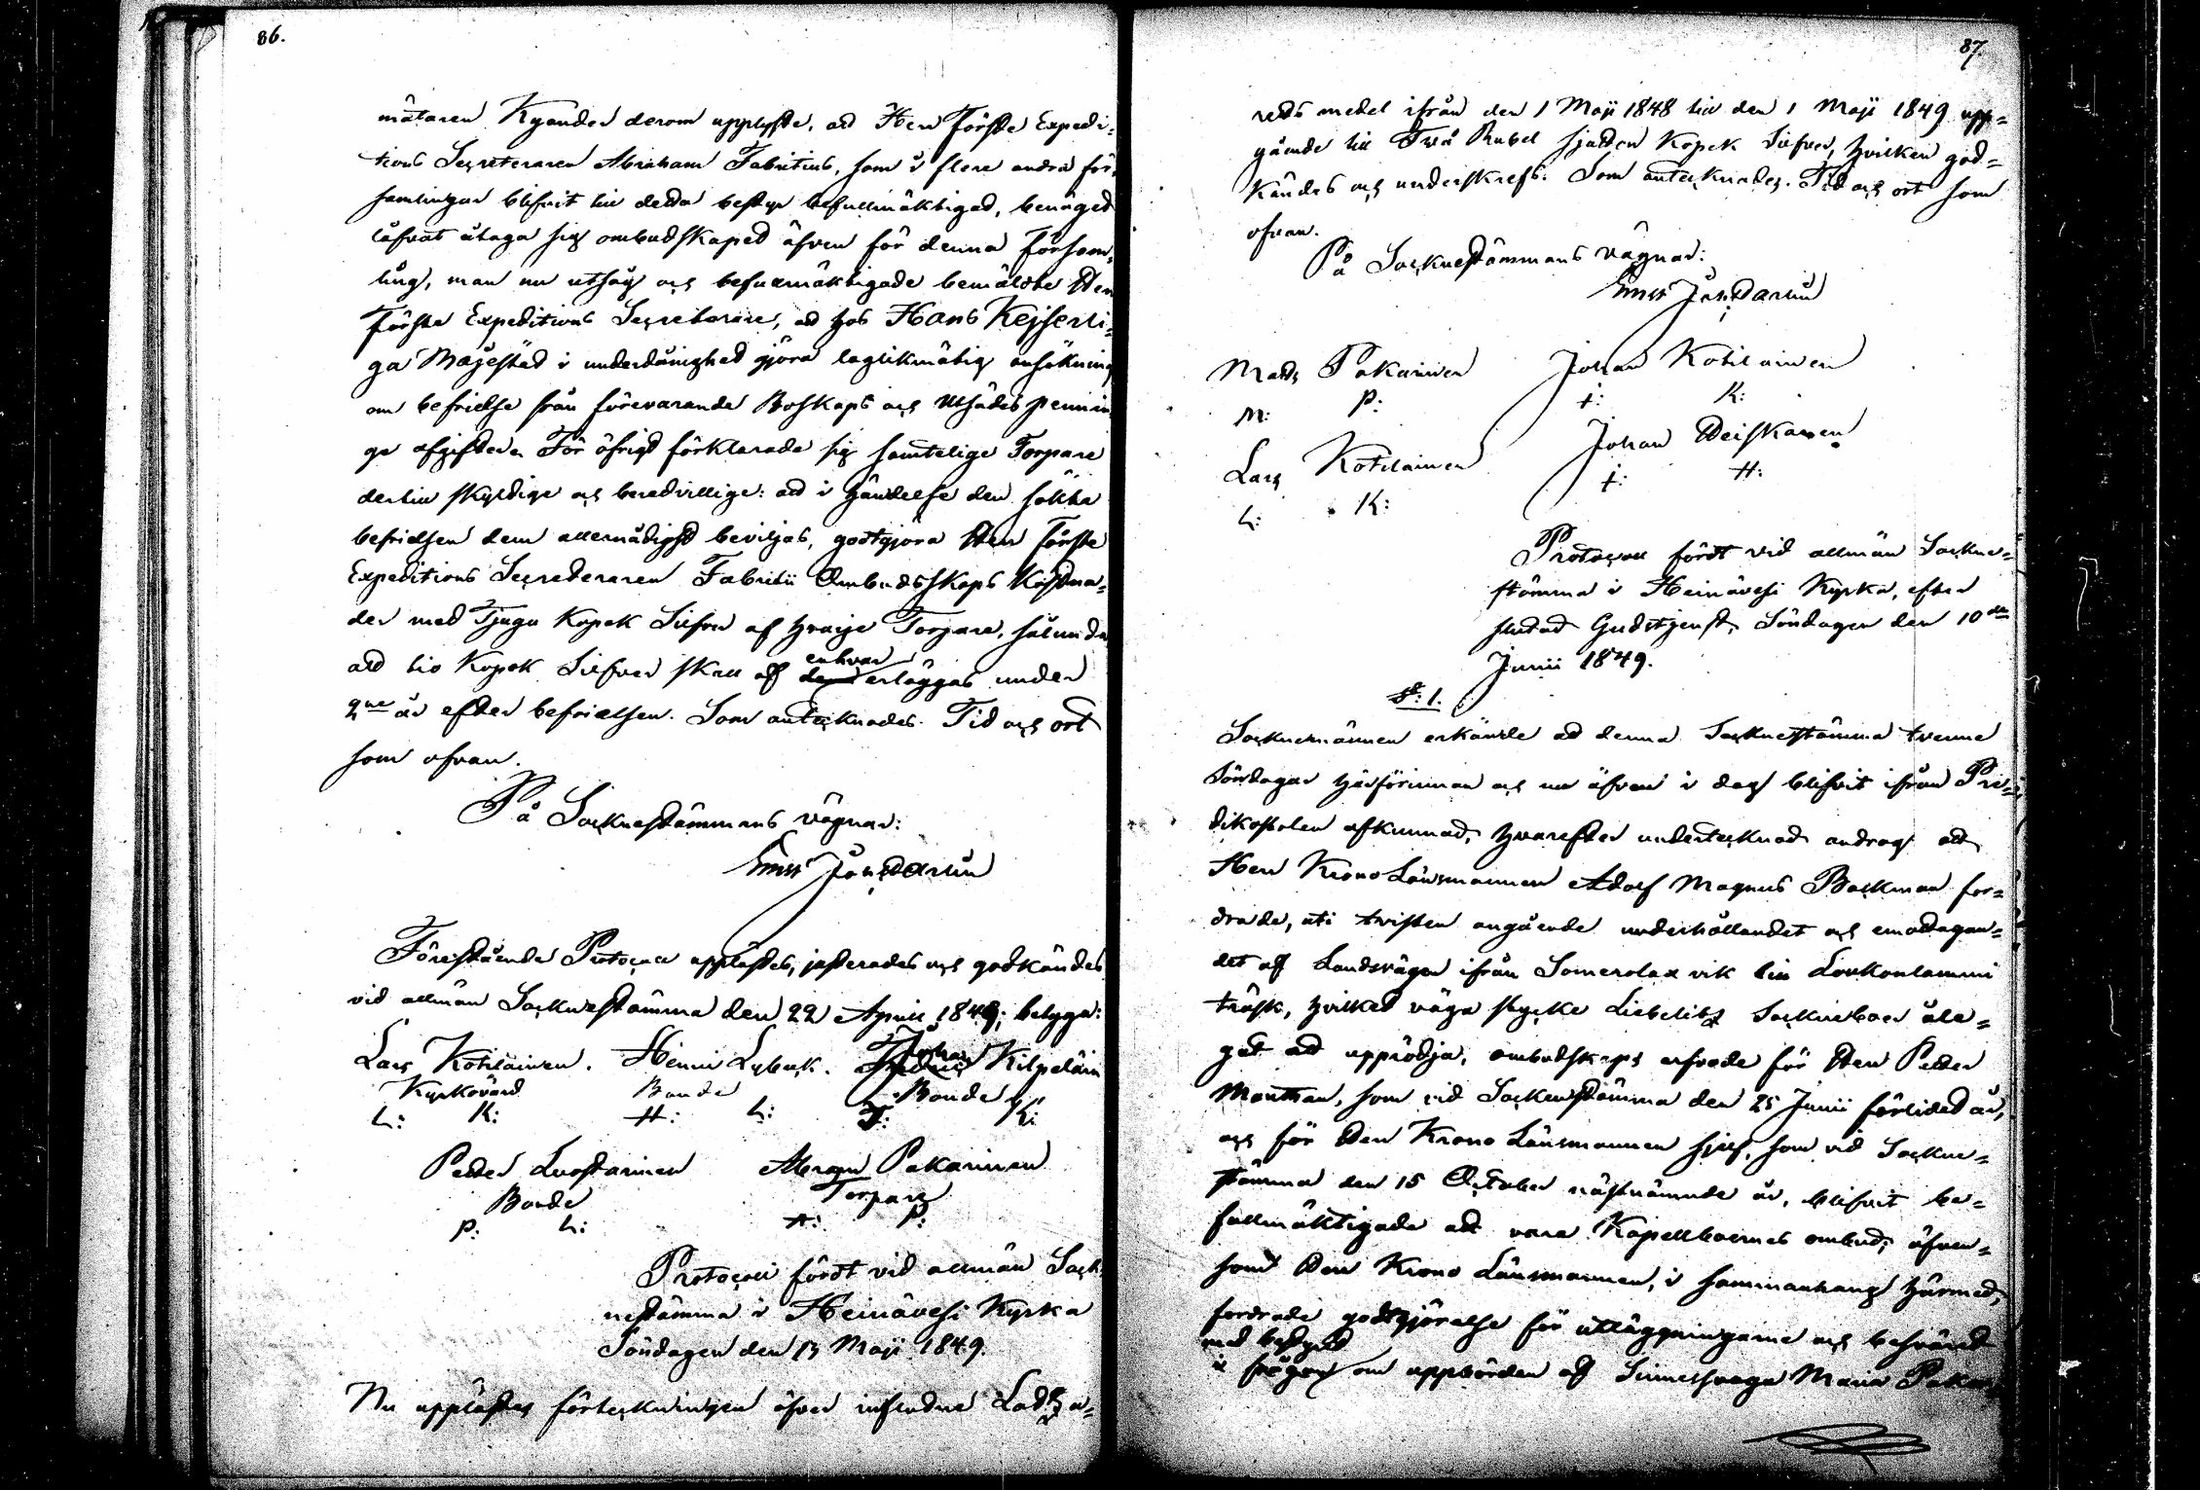 86.
mätaren Kyander derom upplyste, att Herr Förste Expedi-
tions Secreteraren Abraham Fabritius, som i flere andra för-
samlingar blifvit till detta bestyr befullmäktigad, benäget
låfvat åtaga sig ombudskapet äfven för denna Församl-
ling, man nu utsåg och befullmäktigade bemälte Herr
Förste Expeditions Secreterare, att hos Hans Kejserli-
ga Majestät i underdånighet göra laglikmätig ansökning
om befrielse från förevarande Boskaps och Utsädes pennin-
ge afgifter. För öfrigt förklarade sig samtelige Torpare
dertill skyldige och beredvillige: att i händelse den sökta
befrielsen dem allernådigst beviljas, godtgjöra Herr Förste
Expeditions Secreteraren Fabritii Ombudsskaps Kostna-
der med Tjugu Kopek Silfver af hvarje Torpare, sålunda
att tio Kopek Silfver skall af enhvar erläggas under
2ne år efter befrielsen. Som antecknades. Tid och ort
som ofvan.
På Socknestämmans vägnar:
Förestående Protocoll upplästes, justerades och godkändes
vid allmän Socknestämma den 22 Aprill 1849; betyga:
Lars Kotilainen. Henric Lyback. Johan Kilpeläin
Kyrkovärd Bonde Bonde
L: K: H: L: J: K:
Petter Luostarinen Abram Pakarinen
Bonde Torpare
P: L: A: P:
Protocoll fördt vid allmän Sock-
nestämma i Heinävesi Kyrka
Söndagen den 13 Maji 1849.
Nu upplästes förteckningen öfver influtne Lads a-
87.
reds medel ifrån den 1 Maji 1848 till den 1 Maji 1849 upp-
gående till Två Rubel sjutton Kopek Silfver, hvilken god-
kändes och underskrefs. Som antecknades. Tid och ort som
ofvan.
På Socknestämmans vägnar:
Mats Pakarinen Johan Kotilainen
M: P: J: K:
Lars Kotilainen Johan Heiskanen
L: K: J: H:
Protocoll fördt vid allmän Sockne-
stämma i Heinävesi Kyrka, efter
slutad Gudstjenst, Söndagen den 10de
Junii 1849.
§: 1.
Socknemännen erkände att denna Sockenstämma tvenne
Söndagar härförinnan och nu äfven i dag blifvit ifrån Pre-
dikostolen afkunnad, hvarefter undertecknad androg att
Herr Krono Länsmannen Adolf Magnus Backman for-
drade, uti tvisten angående underhållandet och emottagan-
det af Landsvägen ifrån Somerolax vik till Loukonlammi
träsk, hvilket väga stycke Liebelits Socknebor åle-
gat att upprödja, ombudskaps arfvode för Herr Petter
Monthan, som vid Sockenstämma den 25 Junii förlidet år,
och för Herr Krono Länsmannen sjelf, som vid Sockne-
stämma den 15 October nästnämnde år, blifvit be-
fullmäktigade att vara Kapellboernes ombud; äfven-
som Herr Krono Länsmannen, i sammanhang härmed,
fordrade godtgjörelse för utläggningarne och besväret
med bestyret
i frågan om uppvården af Sinnessvaga Maria Pakar